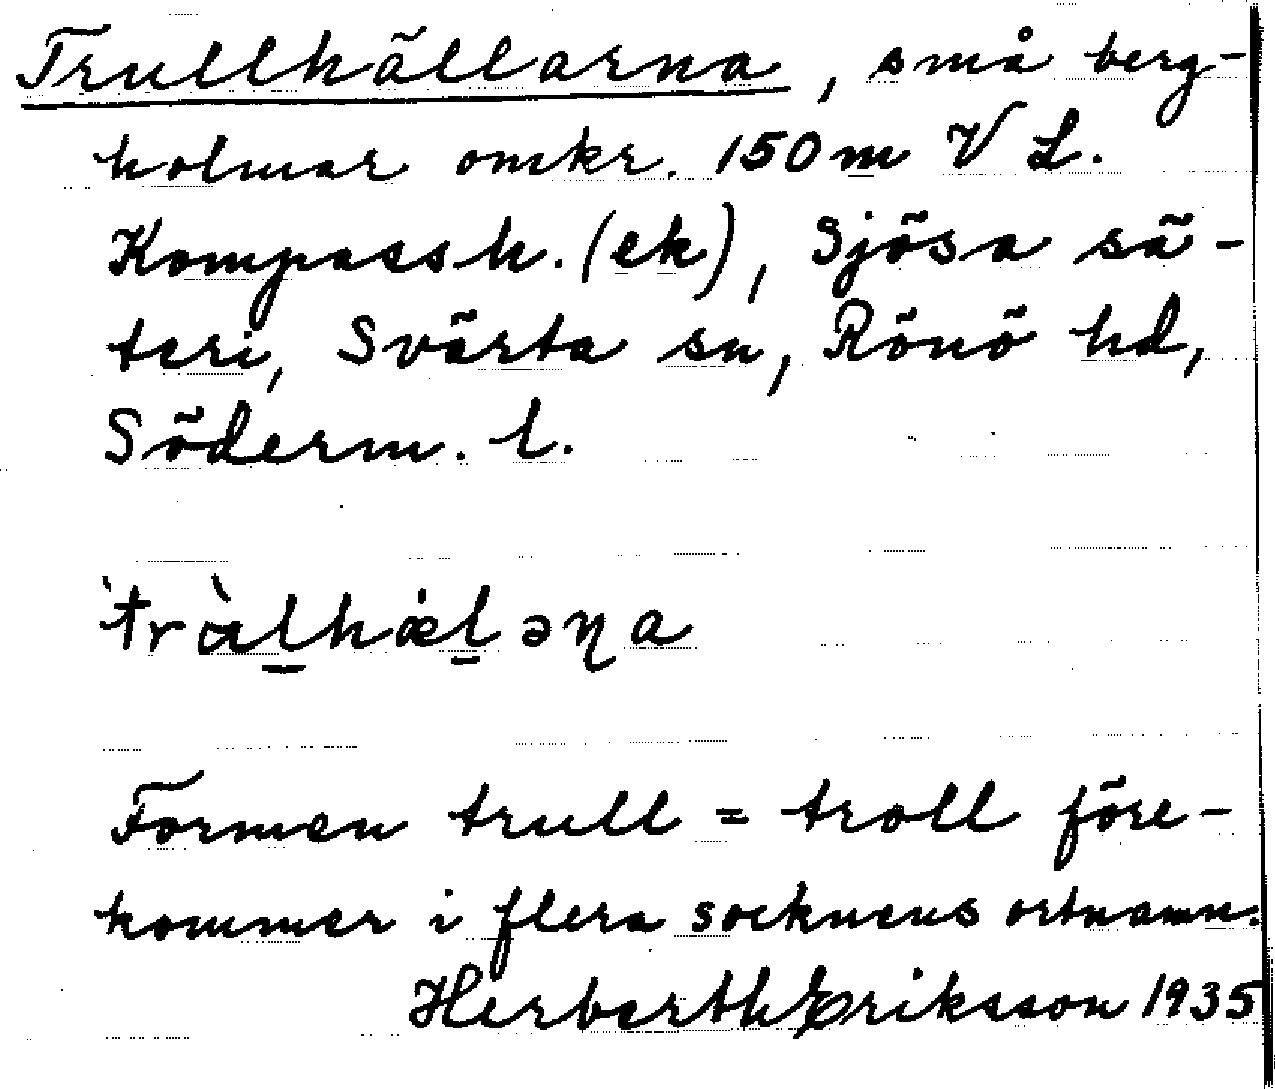 Trullhällarna, små berg-
holmar omkr. 150 m V L.
Kompassh. (ek), Sjösa sä-
teri, Svärta sn, Rönö hd,
Söderm. l.
Formen trull = troll före-
kommer i flera socknens ortnamn.
Herberth Eriksson 1935